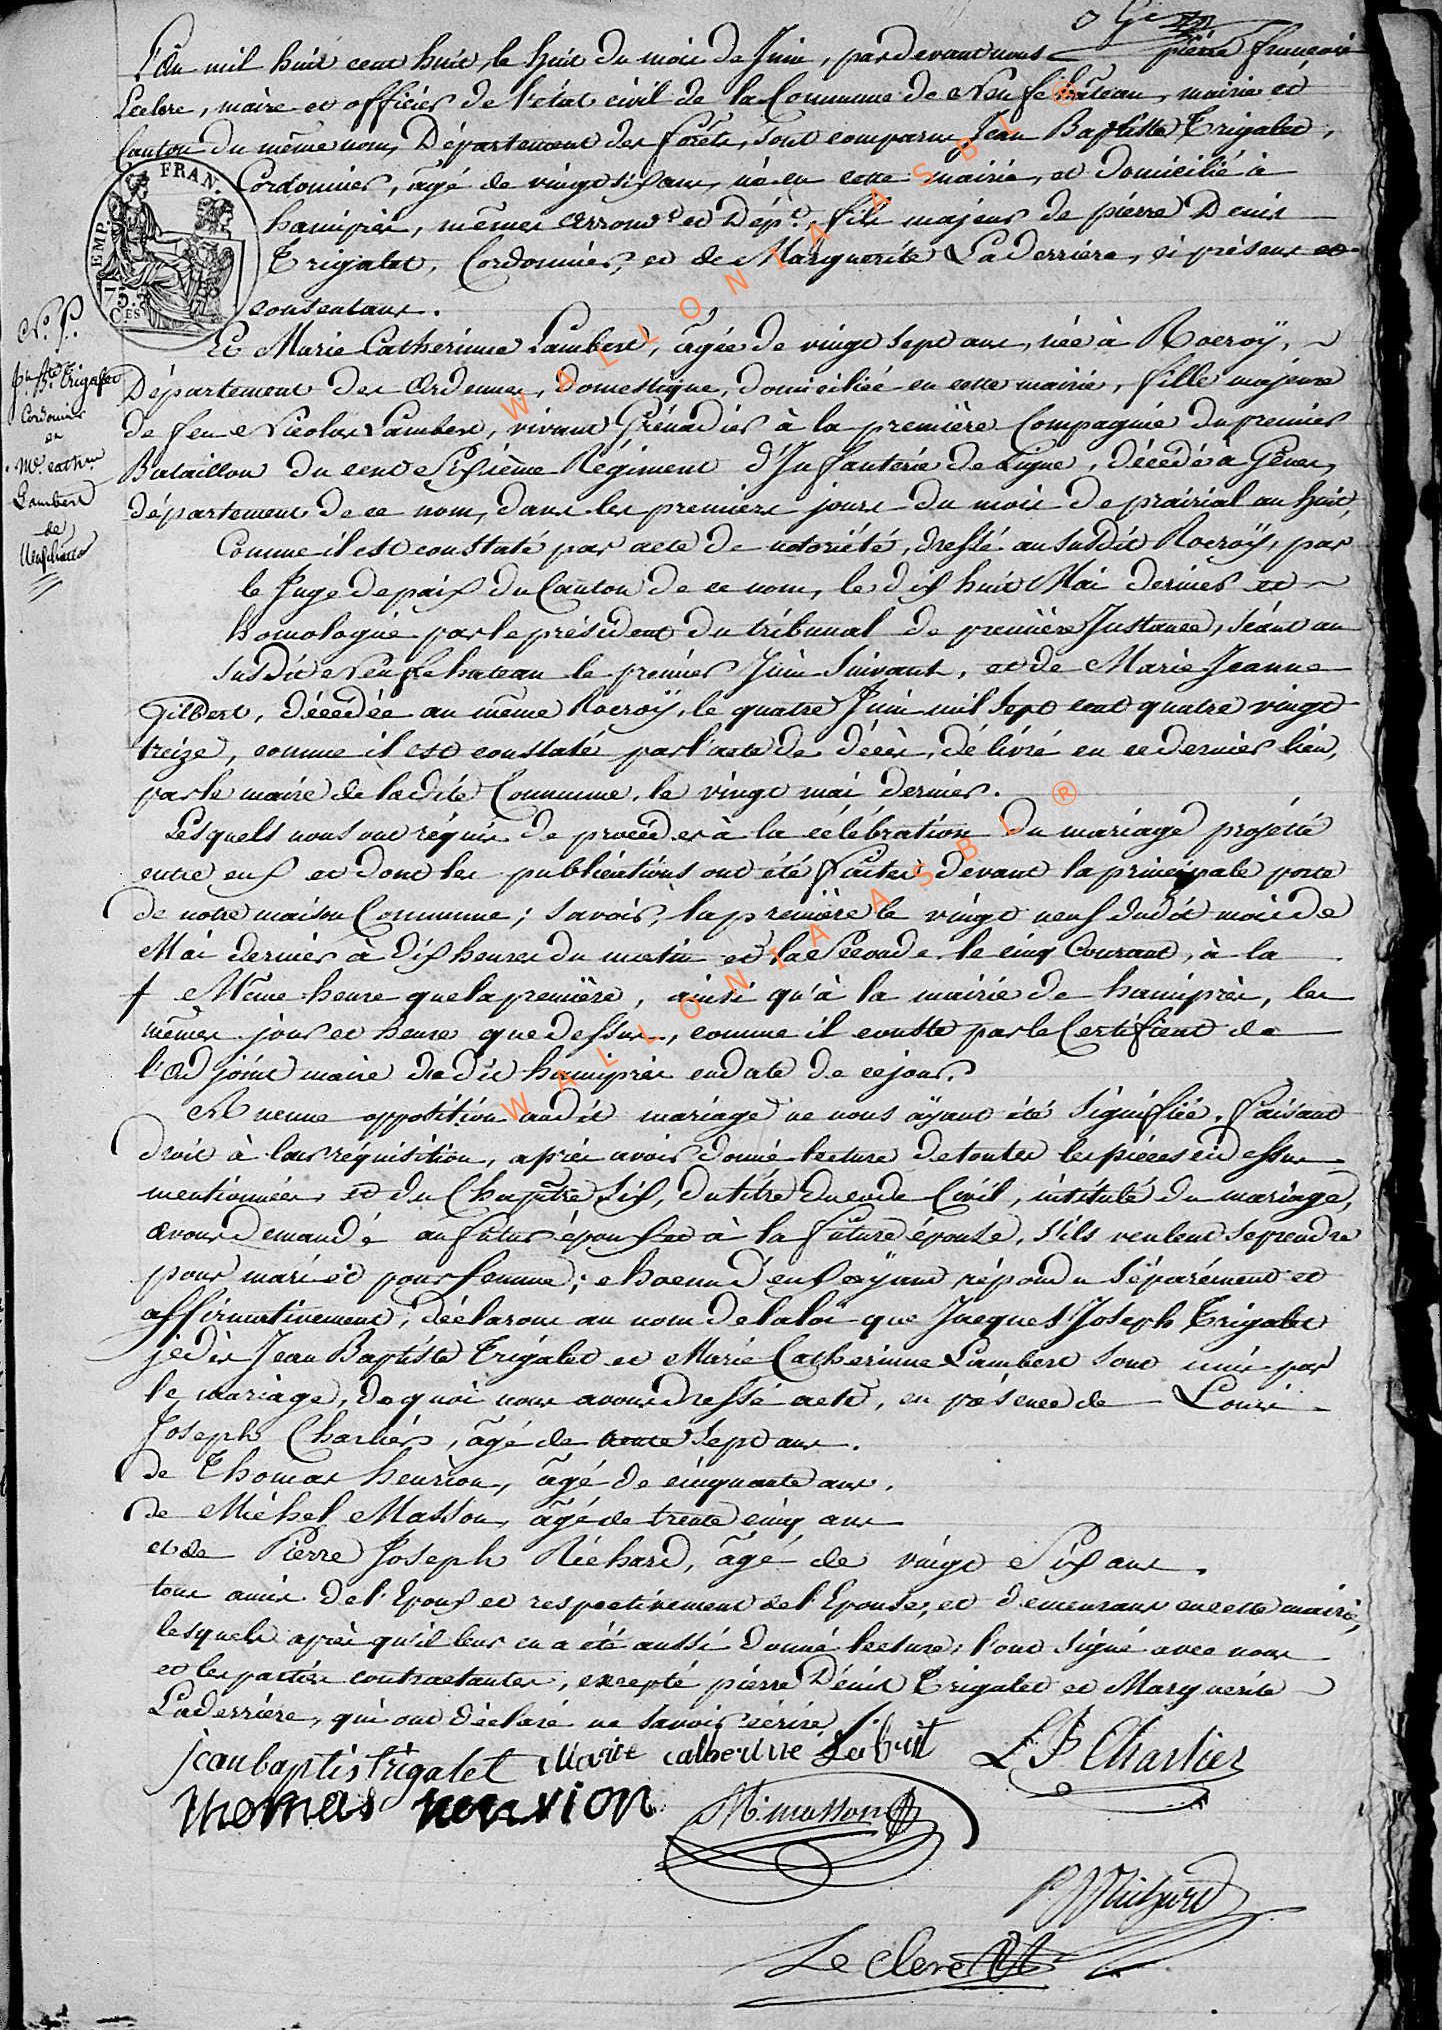 L'An mil huit cent huit, le huit du mois de Juin, pardevant nous pierre françois
Leclerc, maire et officier de l'état civil de la Commune de Neufchâteau, mairie et
Canton du même nom, Département des forêts, sont comparus Jean Baptiste Trigalet,
Cordonnier, âgé de vingt six ans, né en cette mairie, et domicilié à
hamipré, mêmes Arrond.t et Dép.t, fils majeur de pierre Denis
Trigalet, Cordonnier, et de Marguerite Laderrière, ci présens et
consentans.
Et Marie Catherinne Lambert, âgée de vingt sept ans, née à Rocroÿ,
Département des Ardennes, domestique, domiciliée en cette mairie, fille majeure
de feu Nicolas Lambert, vivant Grénadier à la première Compagnie du premier
Bataillon du cent Sixième Régiment d'Infanterie de Ligne, décédé à Gênes,
département de ce nom, dans les premiers jours du mois de prairial an huit,
Comme il est constaté par acte de notoriété, dressé au susdit Rocroÿ, par
le Juge de paix du Canton de ce nom, le dix huit Mai dernier et
homologué par le président du tribunal de première Instance, séant au
susdit Neufchateau le premier Juin suivant, et de Marie Jeanne
Gilbert, décedée au même Rocroÿ, le quatre Juin mil sept cent quatre vingt
treize, comme il est constaté par l'acte de décès, délivré en ce dernier lieu,
par le maire de ladite Commune, le vingt mai dernier.
Lesquels nous ont réquis de procéder à la célébration du mariage projetté
entre eux et dont les publications ont été faites devant la principale porte
de notre maison Commune; savoir, la première le vingt neuf dudit mois de
Mai dernier à dix heures du matin et la Seconde le cinq Courant, à la
Même heure que la première, ainsi qu'à la mairie de hamipré, les
mêmes jour et heure que dessus, comme il conste par le Certificat de
l'Adjoint maire dudit hamipré en date de ce jour.
Aucune opposition audit mariage ne nous aÿant été signifiée, faisant
droit à leur réquisition, après avoir donné lecture de toutes les pièces ci dessus
mentionnées, et du Chapitre Six, du titre du code Civil, intitulé du mariage,
avons demandé au futur époux et à la future épouse, s'ils veulent se prendre
pour mari et pour femme; chacun d'eux aÿant répondu séparément et
affirmativement, déclarons au nom de la loi que Jacques Joseph Trigalet
je dis Jean Baptiste Trigalet et Marie Catherinne Lambert sont unis par
le mariage, de quoi nous avons dressé acte, en présence de Louis
Joseph Charlier, âgé de trente sept ans.
de Thomas henrion, âgé de cinquante ans.
de Michel Masson, âgé de trente cinq ans
et de Pierre Joseph Richard, âgé de vingt Six ans.
tous amis de l'Epoux et respectivement de l'Epouse, et demeurans en cette mairie,
lesquels après qu'il leur en a été aussi donné lecture, l'ont signé avec nous
et les parties contractantes, excepté pierre Dénis Trigalet et Marguérite
Laderrière, qui ont déclaré ne savoir écrire.
jean baptis trigalet Marie catherine Lambert L J Charlier
thomas henrion M. masson
P J Richard
Le Clerc
EMP. FRAN.
75.
C.ES
N.° 7.
Trigalet
Cordonnier
et
M.e cath.ne
Lambert
de
Neufchateau
WALLONIA ASBL ®
WALLONIA ASBL ®